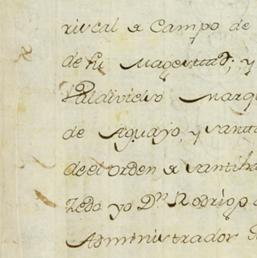 riscal a Campo de
de su Magestad; y
Valdivielso Marqu
de Aguayo, y Sancta
de el orden a Santiha
zedo yo Dn Rodrigo
Administrador